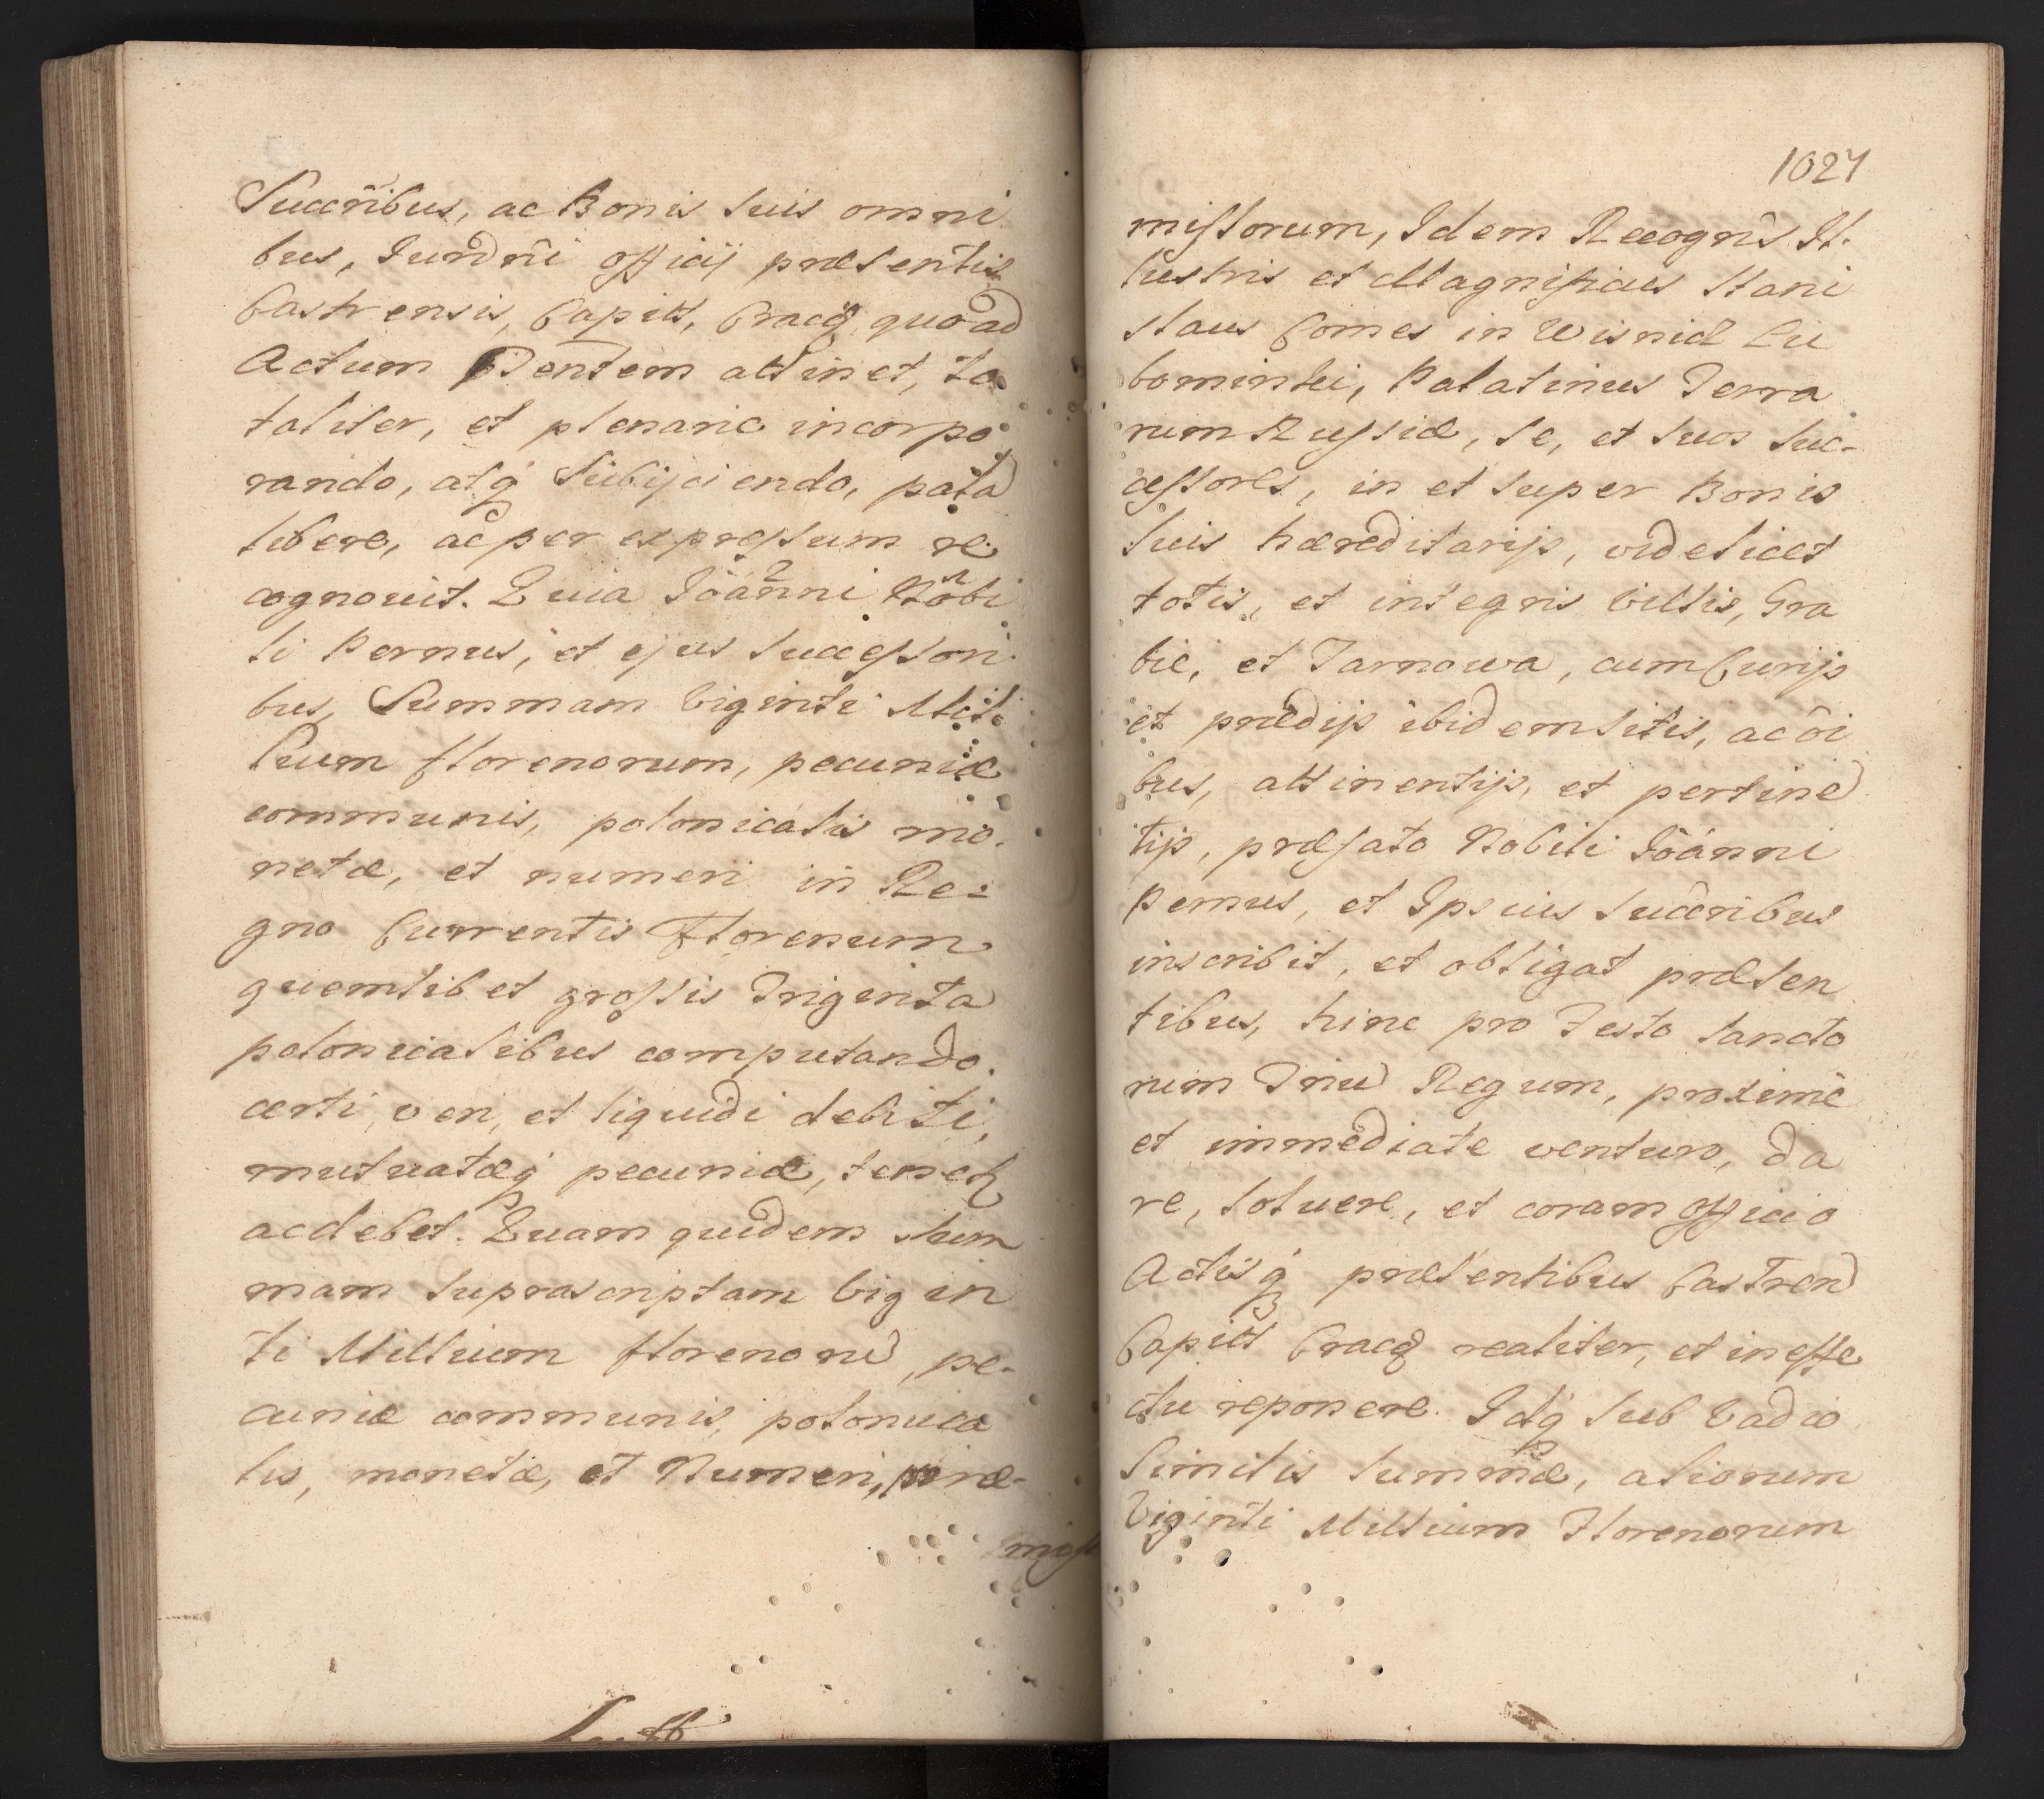 Succribus, ac Bonis suis omni
bus, Jurdni officij præsentis
Castrensis, Capitt, Cracq quoad
Actum Pentem attinet, to
taliter, et plenarie incorpo
rando, atq Subijciendo, pata
libere, ac per expressum re
cognovit. Quia Joanni Nobi
li Pernus, et ejus successori
bus, Summam Viginti Mil
lium florenorum, pecuniæ
communis, polonicalis mo
netæ, et numeri in Re=
gno Currentis Florenum
quemlibet grossis Triginta
polonicalibus computando.
certi, veri, et liquidi debiti,
mutuatæq pecuniæ, tenet
ac debet. Quam quidem sum
mam suprascriptam Vigin
ti Millium florenoru, pe-
cuniæ communis, polonica
lis, monetæ, et Numeri, præ-
miss
1027
missorum, Idem Recogns Il-
lustris et Magnificus Stani
slaus Comes in Wisnicz Lu
bomirski, Palatinus Terra
rum Russiæ, se, et suos suc-
cessores, in et super Bonis
suis hæreditarijs, videlicet
totis, et integris Villis, Gra
bie, et Tarnowa, cum Curijs
et prædijs ibidem sitis, ac oi
bus, attinentijs, et pertine
tijs, præfato Nobili Joánni
Pernus, et Ipsius succribus
inscribit, et obligat præsen
tibus, hinc pro Festo Sancto
rum Triu Regum, proxime
et immediate venturo, da
re, solvere, et coram officio
Actisq præsentibus Castren
Capitt Cracq realiter, et in effe
ctu reponere. Idq sub Vadio
Similis summæ, aliorum
Viginti Millium Florenorum